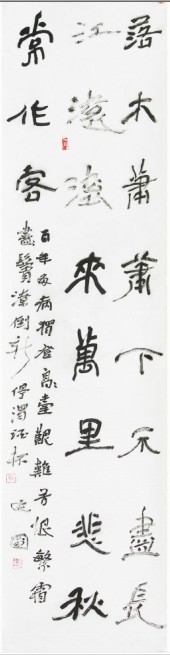 落木蕭蕭下不盡長
江滚滚來萬里悲秋
常作客
百年多病獨登高臺艱難苦恨繁霜
鬢潦倒新停濁酒杯